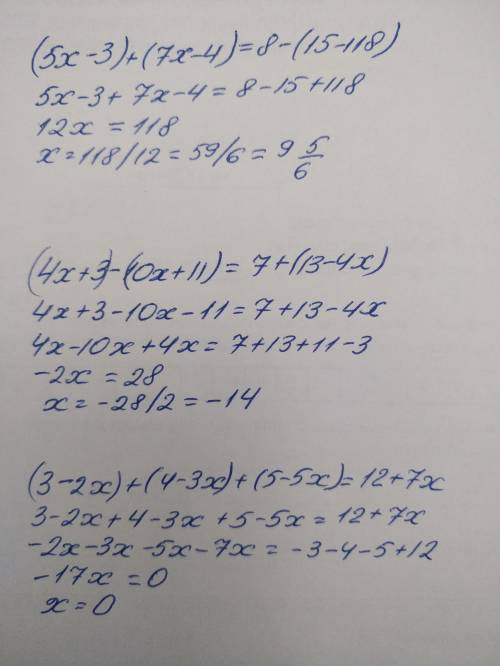 (5x-3)+(7x-4)=8-(15-118)
5x-3+7x-4=8-15+118
12x=118
x=118/12=59/6=9 5/6
(4x+3)-(10x+11)=7+(13-4x)
4x+3-10x-11=7+13-4x
4x-10x+4x=7+13+11-3
-2x=28
x=-28/2=-14
(3-2x)+(4-3x)+(5-5x)=12+7x
3-2x+4-3x+5-5x=12+7x
-2x-3x-5x-7x=-3-4-5+12
-17x=0
x=0